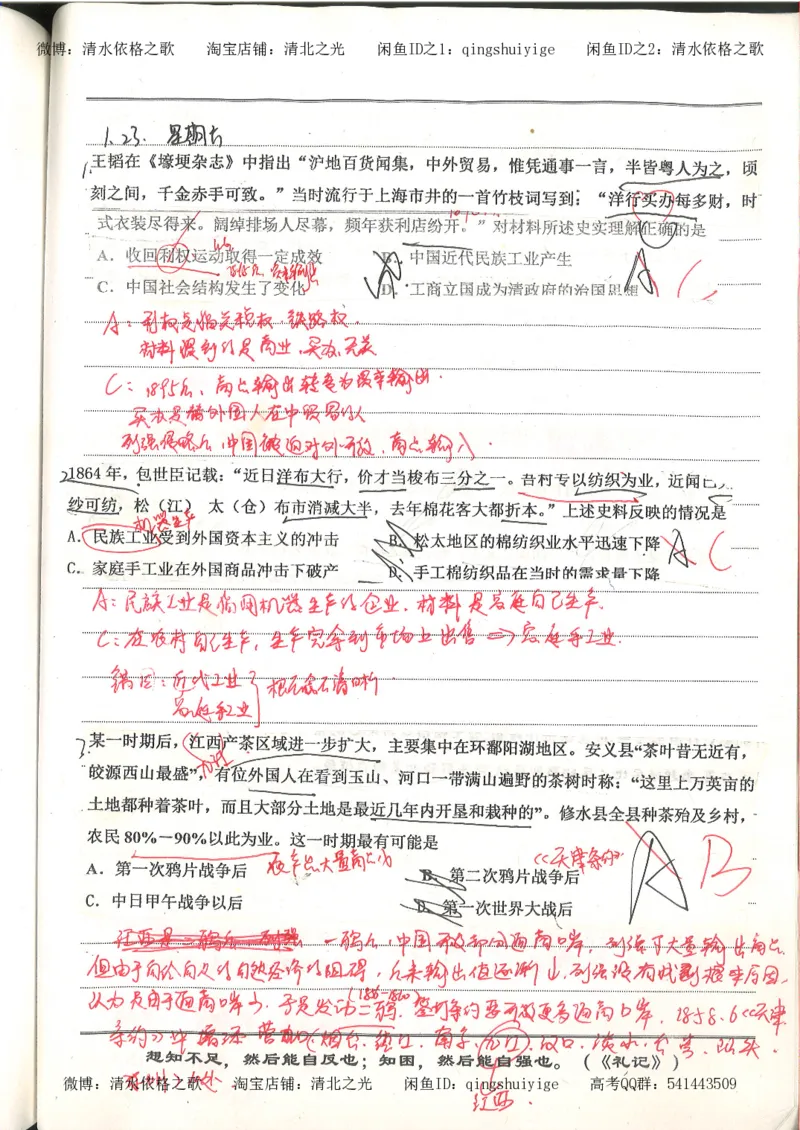 微博：清水依格之歌 淘宝店铺：清北之光 闲鱼ID之1：qingshuiyige 闲鱼ID之2：清水依格之歌
1.23. 星期六
1.王韬在《壕堧杂志》中指出“沪地百货闻集，中外贸易，惟凭通事一言，半皆粤人为之，顷
刻之间，千金赤手可致。”当时流行于上海市井的一首竹枝词写到：“洋行买办每多财，时
式衣装尽得来。阔绰排场人尽慕，频年获利店纷开。”对材料所述史实理解正确的是
A．收回利权运动取得一定成效 B．中国近代民族工业产生
C．中国社会结构发生了变化 D．工商立国成为清政府的治国思想
A C
A：利权是指关税权、铁路权．
材料提到的是商业、买办，无关
C：1895后，商品输出转变为资本输出．
买办是替外国人在中贸易的人
列强侵略后，中国被迫对外开放，商品输入．
2.1864年，包世臣记载：“近日洋布大行，价才当梭布三分之一。吾村专以纺织为业，近闻已
纱可纺，松（江） 太（仓）布市消减大半，去年棉花客大都折本。”上述史料反映的情况是
机器生产
A．民族工业受到外国资本主义的冲击 B．松太地区的棉纺织业水平迅速下降
C．家庭手工业在外国商品冲击下破产 D．手工棉纺织品在当时的需求量下降
A C
A：民族工业是指用机器生产的企业，材料是家庭自己生产．
C：在农村自己生产，生产完拿到市场上出售⇒家庭手工业．
错因：近代工业
家庭手工业
概念没有清晰．
3.某一时期后，江西产茶区域进一步扩大，主要集中在环鄱阳湖地区。安义县“茶叶昔无近有，
九江
皎源西山最盛”，有位外国人在看到玉山、河口一带满山遍野的茶树时称：“这里上万英亩的
土地都种着茶叶，而且大部分土地是最近几年内开垦和栽种的”。修水县全县种茶殆及乡村，
农民80%－90%以此为业。这一时期最有可能是
A．第一次鸦片战争后 B．第二次鸦片战争后
《天津条约》
C．中日甲午战争以后 D．第一次世界大战后
A B
一鸦后，中国开放部分通商口岸，列强可大量输出商品
但由于自给自足的自然经济的阻碍，后来输出值逐渐少，列强没有找到根本原因，
以为是由于通商口岸少，于是发动二鸦，签订条约要开放更多通商口岸，1858.6《天津
(1856-1860)
条约》
汉口．淡水．
想知不足，然后能自反也；知困，然后能自强也。（《礼记》）
微博：清水依格之歌 淘宝店铺：清北之光 闲鱼ID：qingshuiyige 高考QQ群：541443509
江西．